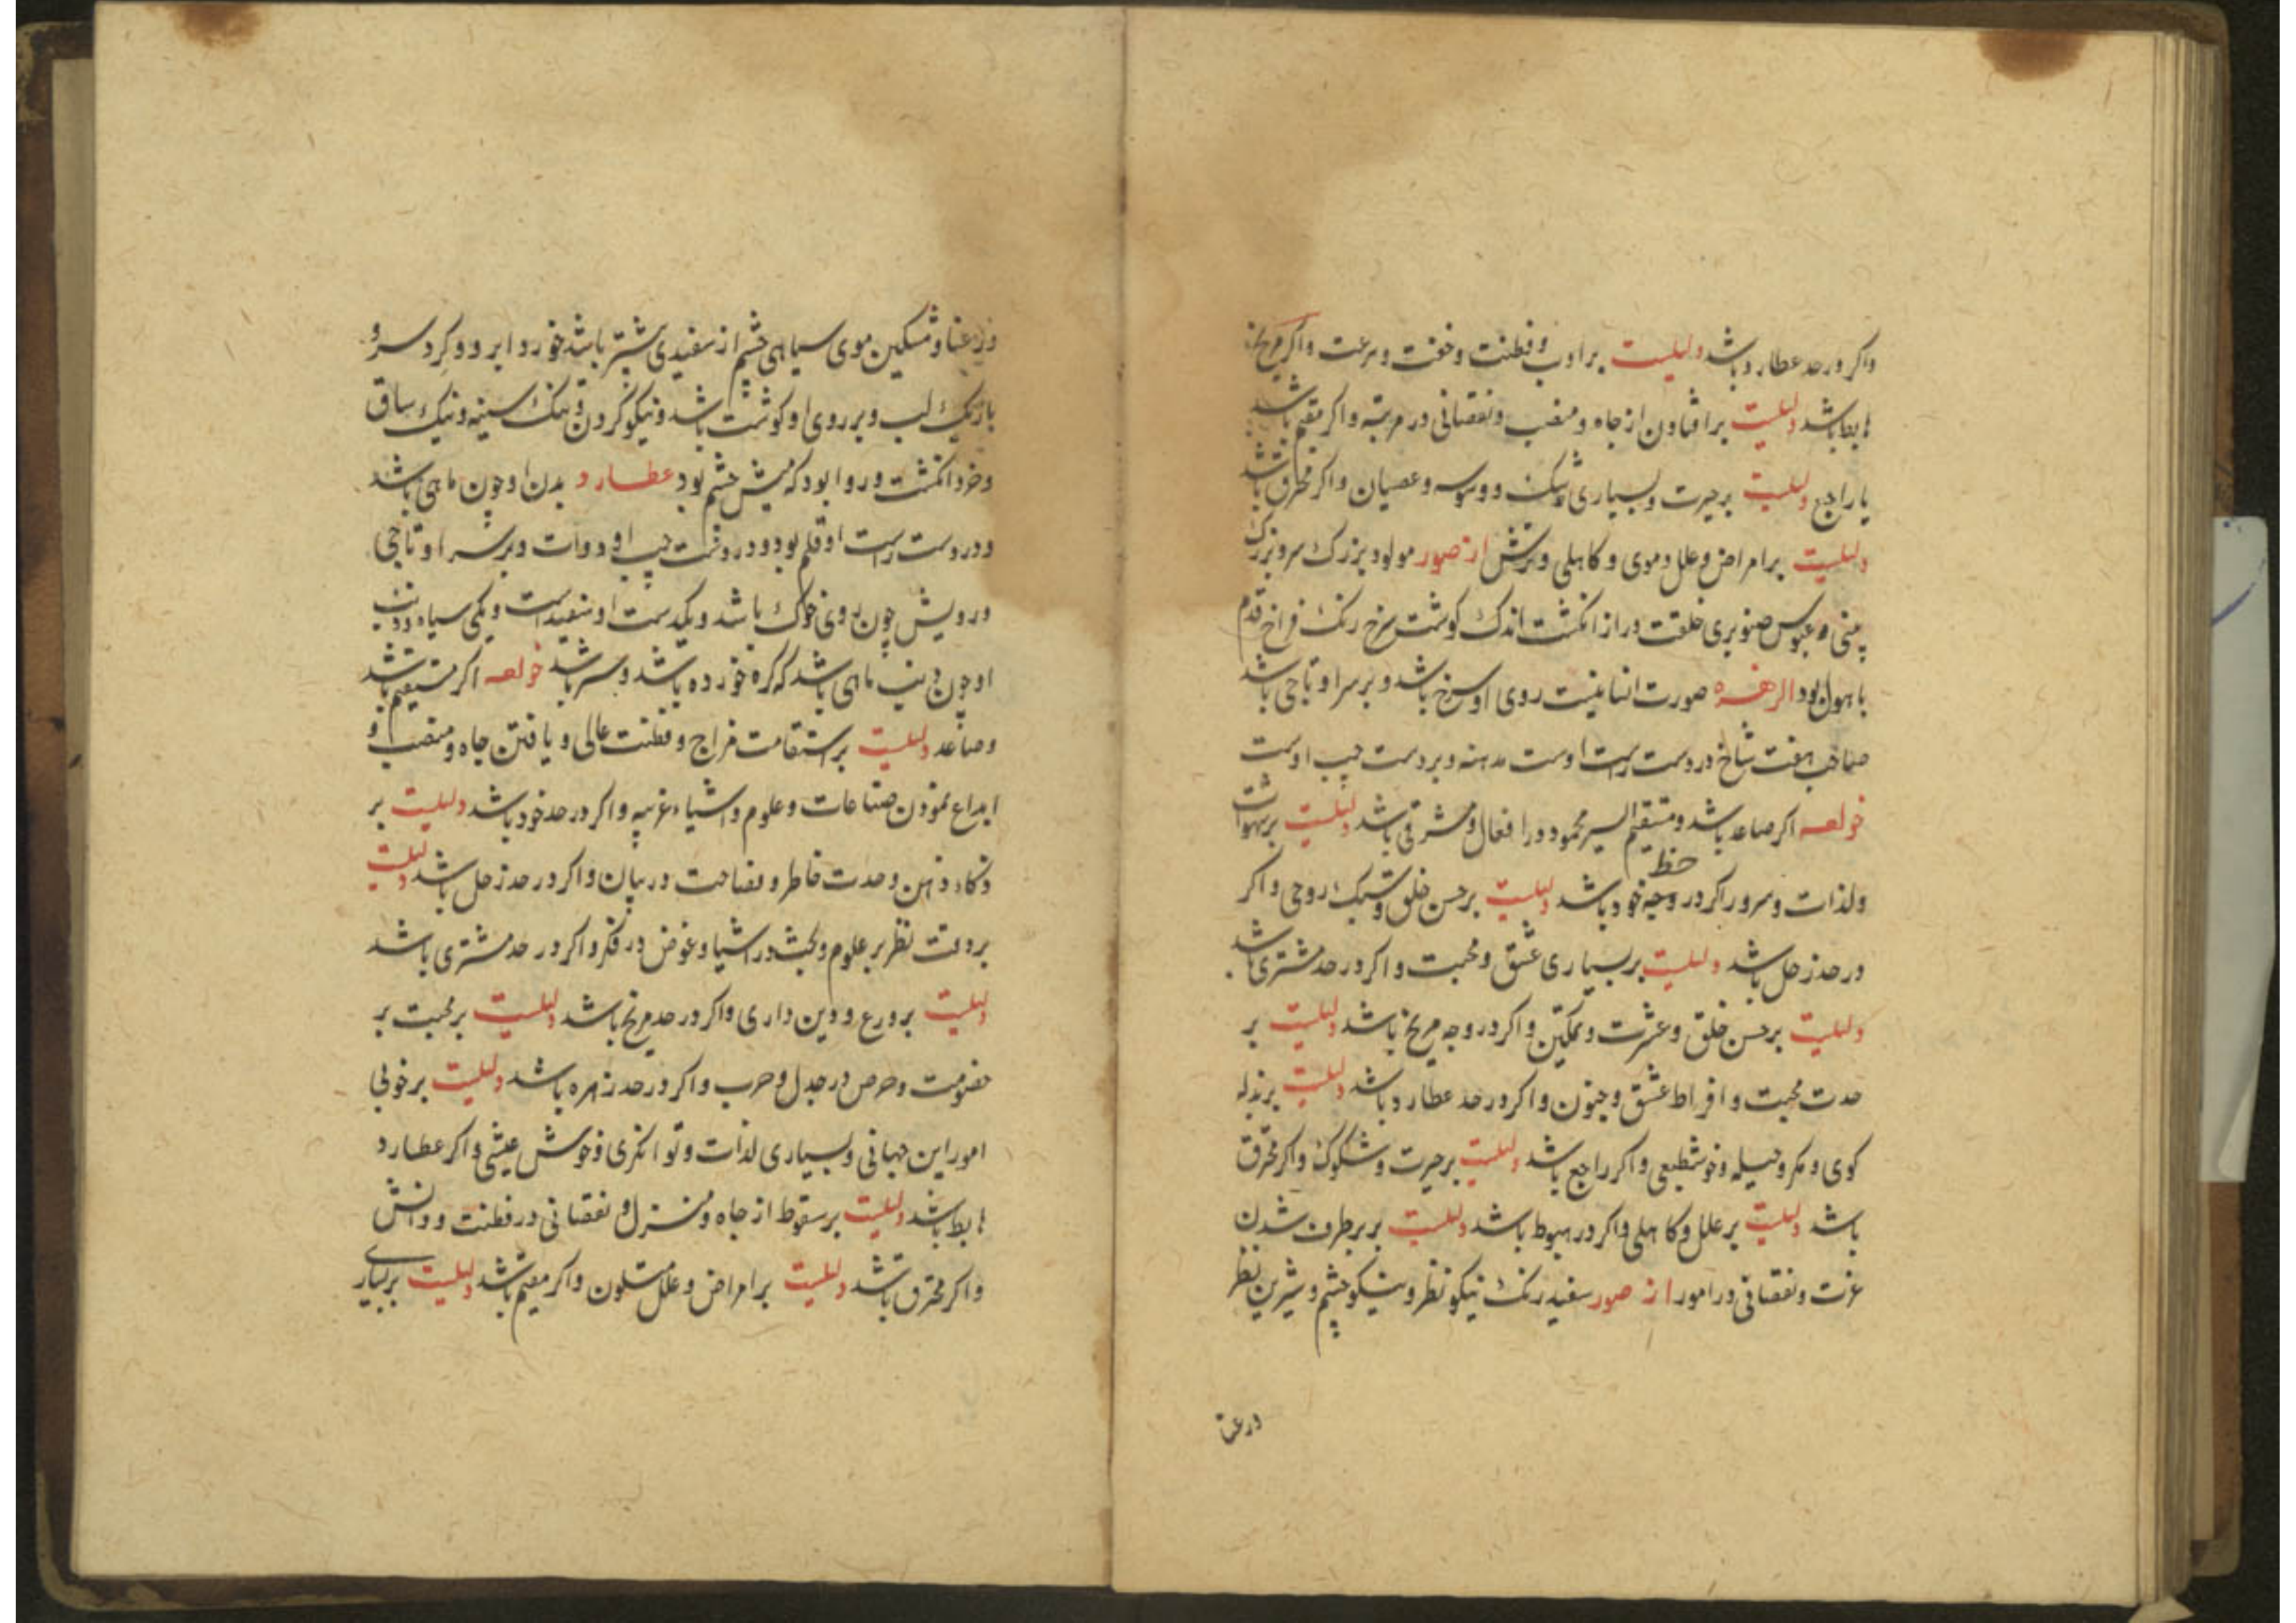 واکر درحد عطارد باشد دلیلست بر ادب و فطنت وخفت وسرعت واکر مریخ
هابط باشد دلیلست بر افتادن از جاه و منصب ونقصانی در مرتبه واکر مقیم باشد
یا راجع دلیلست برحیرت وبسیاری شک ووسوسه وعصیان واکر محترق باشد
دلیلست بر امراض وعلل دموی وکاهلی وترش از صور مولود بزرک سر وبزرک
بینی وعبوس صنوبری خلقت دراز انکشت اندک کوشت سرخ رنک فراخ قدم
باهول بود الزهره صورت انسانیست روی او سرخ باشد وبر سر او تاجی باشد
صاحب هفت شاخ در دست راست اوست مدهنه وبر دست چپ اوست
خواصه اکر صاعد باشد ومستقیم السیر محمود در افعال ومشرقی باشد دلیلست بر شهوات
ولذات وسرور اکر در وجه حظ خود باشد دلیلست برحسن خلق وسبک روحی واکر
درحد زحل باشد دلیلست بر بسیاری عشق ومحبت واکر درحد مشتری باشد
دلیلست برحسن خلق وعشرت وتمکین واکر در وجه مریخ باشد دلیلست بر
حدت محبت وافراط عشق وجنون واکر درحد عطارد باشد دلیلست بر بذله
کوی ومکر وحیله وخوشطبعی واکر راجع باشد دلیلست برحیرت وشکوک واکر محترق
باشد دلیلست بر علل وکاهلی واکر در هبوط باشد دلیلست بر برطرف شدن
عزت ونقصانی در امور از صور سفید رنک نیکو نظر ونیکو چشم وشیرین نظر
ورعنا
ورعنا ومشکین موی سیاهی چشم از سفیدی بیشتر باشد خورد ابرو وکرد سر و
باریک لب وبر روی او کوشت باشد ونیکو کردن وتنک سینه ونیک ساق
وخرد انکشت وروا بود که میش چشم بود عطارد بدن او چون ماهی باشد
ودر دست راست او قلم بود ودر دست چپ او دوات وبر سر او تاجی
ورویش چون روی خوک باشد ویکدست او سفیدست ویکی سیاه وذنب
او چون ذنب ماهی باشد که کره خورده باشد وسبز باشد خواصه اکر مستقیم باشد
وصاعد دلیلست بر استقامت مزاج وفطنت عالی ویافتن جاه ومنصب و
ابداع نمودن صناعات وعلوم واشیاء غریبه واکر درحد خود باشد دلیلست بر
ذکاء ذهن وحدت خاطر وفصاحت در بیان واکر درحد زحل باشد دلیلست
بر دقت نظر بر علوم وبحث در اشیا وغوض در فکر واکر درحد مشتری باشد
دلیلست بر ورع ودین داری واکر درحد مریخ باشد دلیلست بر محبت بر
خصومت وحرص در جدل وحرب واکر درحد زهره باشد دلیلست بر خوبی
امور این جهانی وبسیاری لذات وتوانکری وخوش عیشی واکر عطارد
هابط باشد دلیلست بر سقوط از جاه ومنزل ونقصانی در فطنت ودانش
واکر محترق باشد دلیلست بر امراض وعلل متلون واکر مقیم باشد دلیلست بر بسیاری